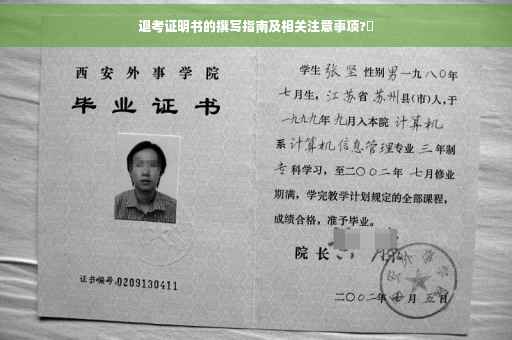 退考证明书的撰写指南及相关注意事项?
西安外事学院
毕业证书
证书编号:0209130411
学生 张坚 性别 男 一九八〇年
七月生，江苏省 苏州县(市)人，于
一九九九年 九月入本院 计算机
系 计算机信息管理专业 三 年制
专 科学习，至二〇〇二年 七月修业
期满，学完教学计划规定的全部课程，
成绩合格，准予毕业。
院长
二〇〇二年 月 五日